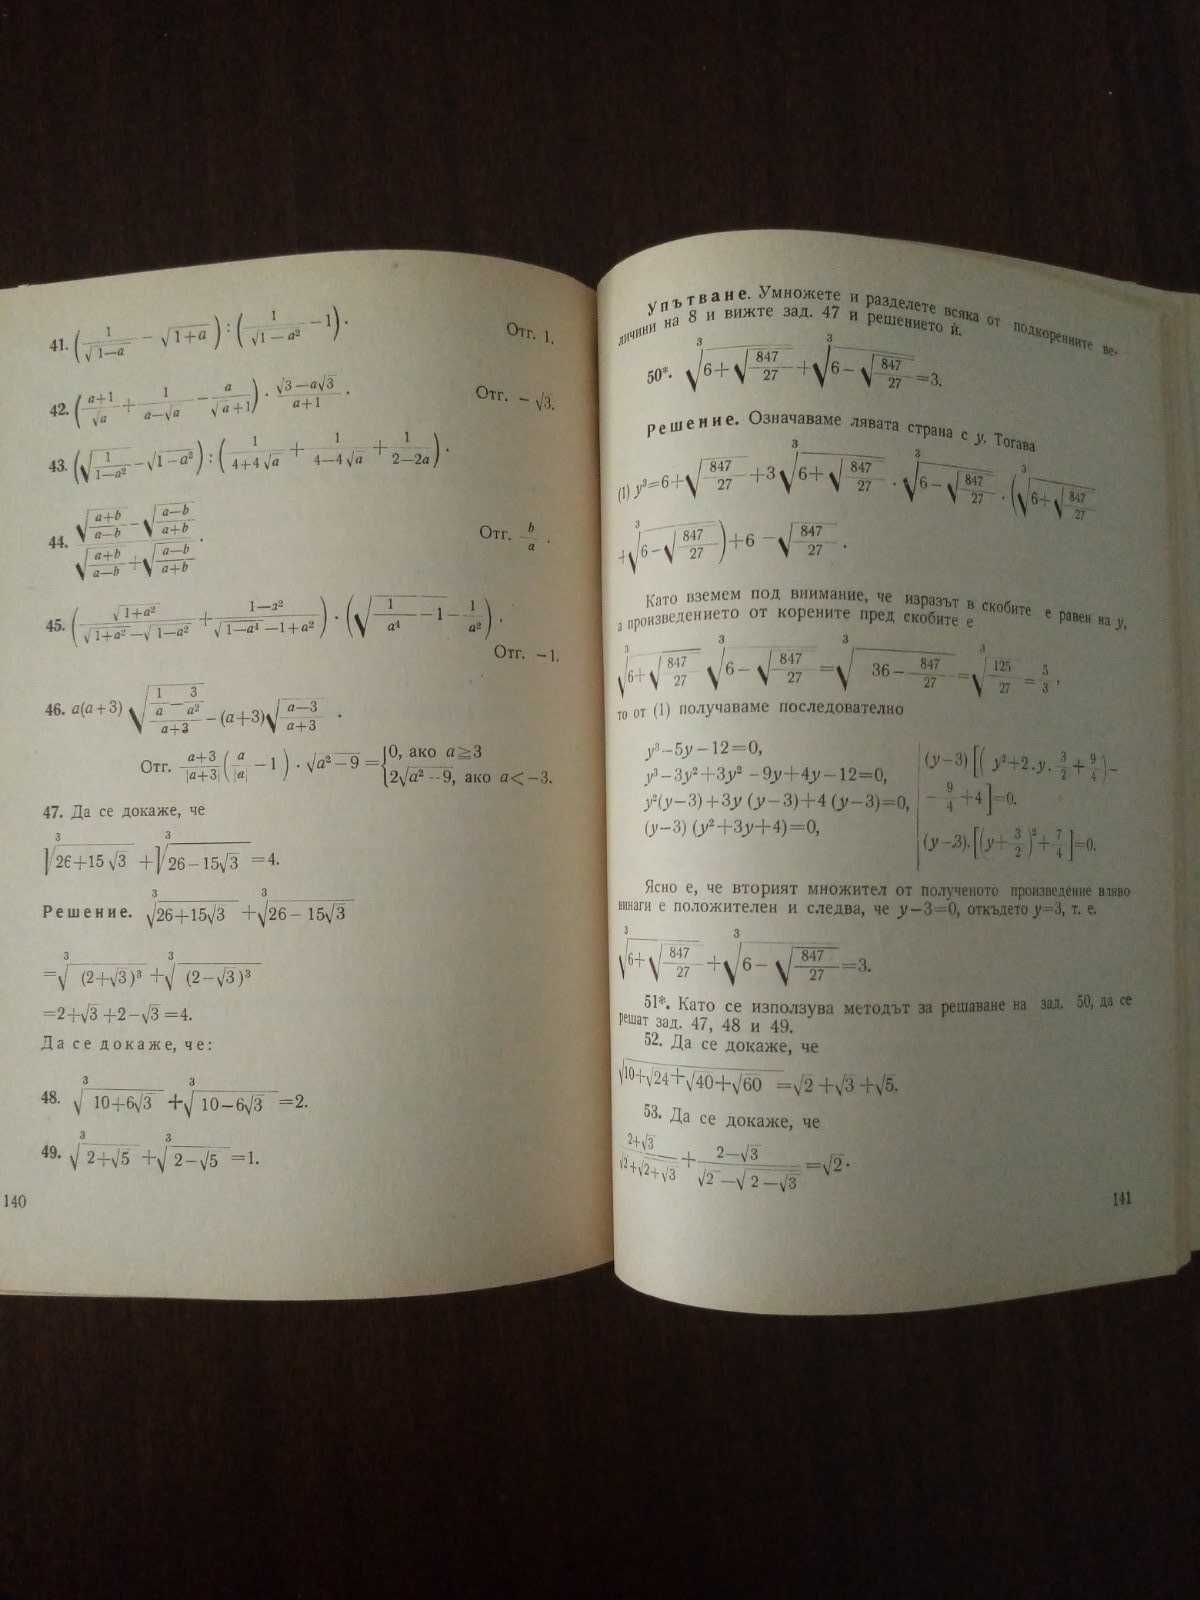 41. (1/√(1−a) − √(1+a)) : (1/√(1−a²) − 1). Отг. 1.
42. ((a+1)/√a + 1/(a−√a) − a/(√a+1)) · (√3−a√3)/(a+1). Отг. −√3.
43. (√(1/(1−a²)) − √(1−a²)) : (1/(4+4√a) + 1/(4−4√a) + 1/(2−2a)).
44. (√((a+b)/(a−b)) − √((a−b)/(a+b))) / (√((a+b)/(a−b)) + √((a−b)/(a+b))). Отг. b/a.
45. (√(1+a²)/(√(1+a²)−√(1−a²)) + (1−a²)/(√(1−a⁴)−1+a²)) · (√(1/a⁴ −1) − 1/a²).
Отг. −1.
46. a(a+3) √((1/a − 3/a²)/(a+3)) − (a+3)√((a−3)/(a+3)).
Отг. (a+3)/|a+3| (a/|a| −1) · √(a²−9) = {0, ако a≧3
2√(a²−9), ако a<−3.
47. Да се докаже, че
∛(26+15√3) + ∛(26−15√3) =4.
Решение. ∛(26+15√3) + ∛(26−15√3)
=∛((2+√3)³) + ∛((2−√3)³)
=2+√3+2−√3=4.
Да се докаже, че:
48. ∛(10+6√3) + ∛(10−6√3) =2.
49. ∛(2+√5) + ∛(2−√5) =1.
140
Упътване. Умножете и разделете всяка от подкоренните ве-
личини на 8 и вижте зад. 47 и решението й.
50*. ∛(6+√(847/27)) + ∛(6−√(847/27)) =3.
Решение. Означаваме лявата страна с y. Тогава
(1) y³=6+√(847/27) +3 ∛(6+√(847/27)) · ∛(6−√(847/27)) · (∛(6+√(847/27))
+∛(6−√(847/27))) +6 −√(847/27).
Като вземем под внимание, че изразът в скобите е равен на y,
а произведението от корените пред скобите е
∛(6+√(847/27)) ∛(6−√(847/27)) = ∛(36−847/27) = ∛(125/27) = 5/3,
то от (1) получаваме последователно
y³−5y−12=0,
y³−3y²+3y²−9y+4y−12=0,
y²(y−3)+3y (y−3)+4 (y−3)=0,
(y−3) (y²+3y+4)=0,
(y−3)[(y²+2.y.3/2+9/4)−
−9/4+4]=0.
(y−3).[(y+3/2)²+7/4]=0.
Ясно е, че вторият множител от полученото произведение вляво
винаги е положителен и следва, че y−3=0, откъдето y=3, т. е.
∛(6+√(847/27)) + ∛(6−√(847/27)) =3.
51*. Като се използува методът за решаване на зад. 50, да се
решат зад. 47, 48 и 49.
52. Да се докаже, че
√(10+√24+√40+√60) =√2+√3+√5.
53. Да се докаже, че
(2+√3)/(√2+√(2+√3)) + (2−√3)/(√2−√(2−√3)) =√2.
141